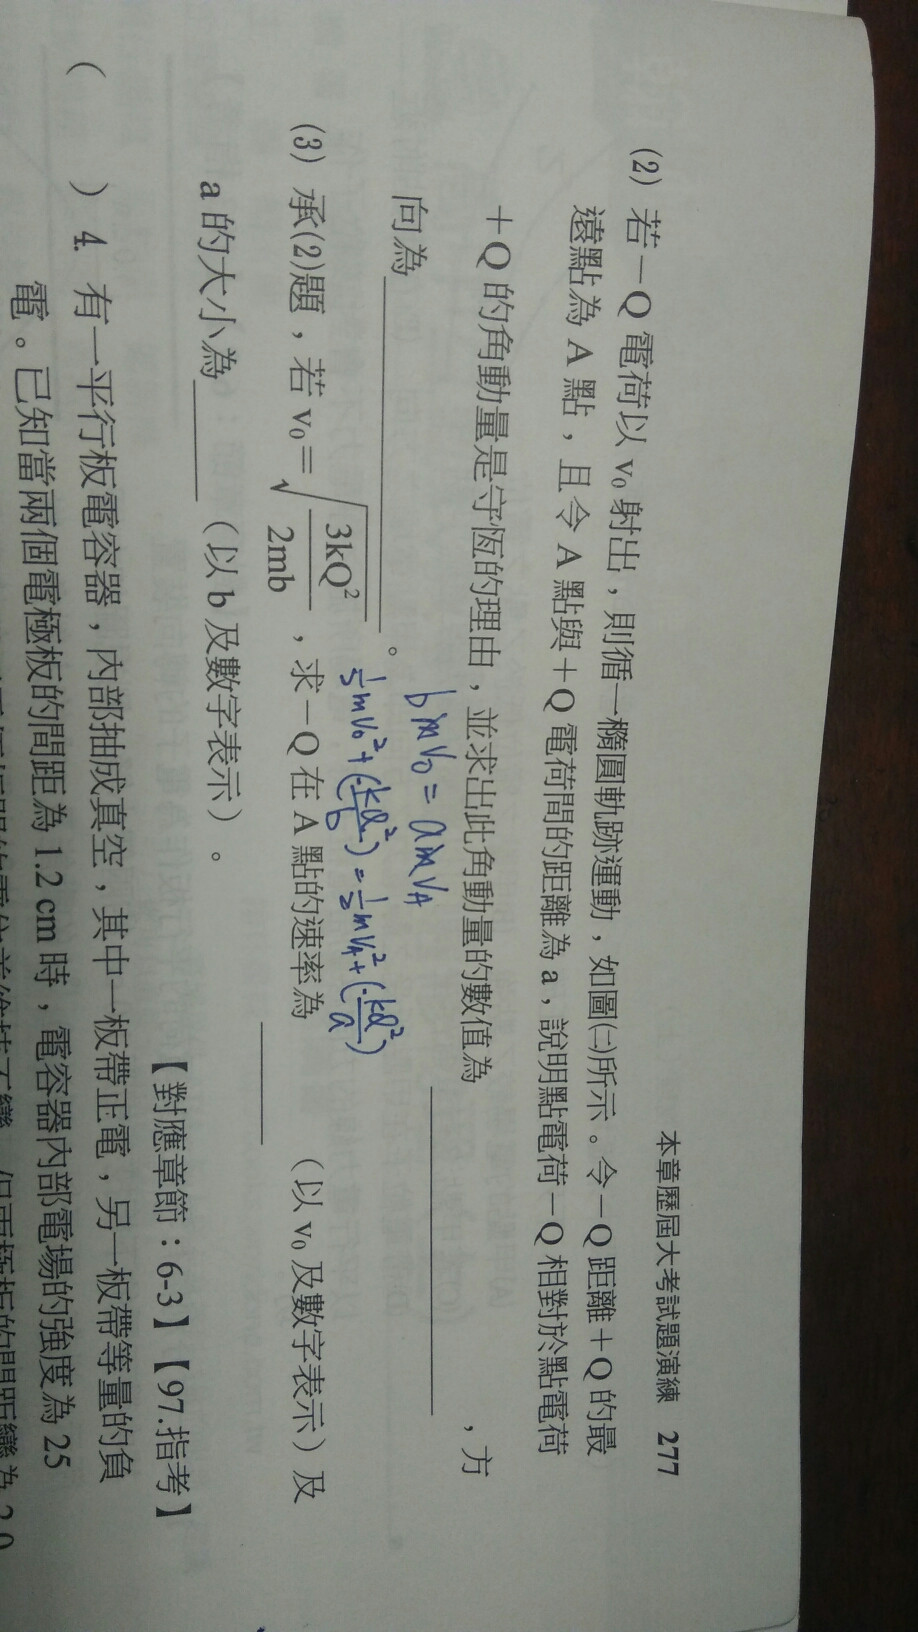 本章歷屆大考試題演練 277
(2) 若－Q 電荷以 v₀ 射出，則循一橢圓軌跡運動，如圖㈡所示。令－Q 距離＋Q 的最
遠點為 A 點，且令 A 點與＋Q 電荷間的距離為 a，說明點電荷－Q 相對於點電荷
＋Q 的角動量是守恆的理由，並求出此角動量的數值為＿＿＿＿＿＿，方
向為＿＿＿＿＿＿。
bmv₀ = amv_A
½mv₀² + (-kQ²/b) = ½mv_A² + (-kQ²/a)
(3) 承(2)題，若 v₀＝√(3kQ²/2mb)，求－Q 在 A 點的速率為＿＿＿（以 v₀ 及數字表示）及
a 的大小為＿＿＿（以 b 及數字表示）。
【對應章節：6-3】【97.指考】
( ) 4. 有一平行板電容器，內部抽成真空，其中一板帶正電，另一板帶等量的負
電。已知當兩個電極板的間距為 1.2 cm 時，電容器內部電場的強度為 25